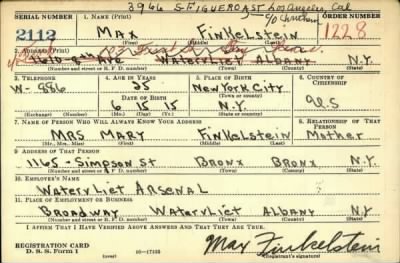 3966 S. FIGUEROA ST Los Angeles, Cal
SERIAL NUMBER 1. NAME (Print) ORDER NUMBER
2112 MAX FINKELSTEIN 1228
(First) (Middle) (Last)
2. ADDRESS (Print)
1610-8th AVE WATERVLIET ALBANY N.Y.
(Number and street or R. F. D. number) (Town) (County) (State)
3. TELEPHONE 4. AGE IN YEARS 5. PLACE OF BIRTH 6. COUNTRY OF CITIZENSHIP
W-886 25 NEW YORK CITY
DATE OF BIRTH (Town or county)
6 15 15 N.Y. U.S
(Exchange) (Number) (Mo.) (Day) (Yr.) (State or country)
7. NAME OF PERSON WHO WILL ALWAYS KNOW YOUR ADDRESS 8. RELATIONSHIP OF THAT PERSON
MRS MARY FINKELSTEIN Mother
(Mr., Mrs., Miss) (First) (Middle) (Last)
9. ADDRESS OF THAT PERSON
1165-SIMPSON ST BRONX BRONX N.Y.
(Number and street or R. F. D. number) (Town) (County) (State)
10. EMPLOYER'S NAME
WATERVLIET ARSENAL
11. PLACE OF EMPLOYMENT OR BUSINESS
BROADWAY WATERVLIET ALBANY N.Y.
(Number and street or R. F. D. number) (Town) (County) (State)
I AFFIRM THAT I HAVE VERIFIED ABOVE ANSWERS AND THAT THEY ARE TRUE.
REGISTRATION CARD
D. S. S. Form 1 (over) 16-17105 Max Finkelstein
(Registrant's signature)